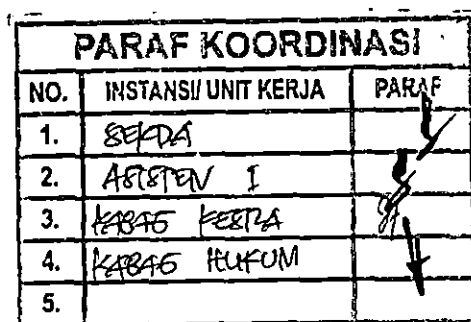 PARAF KOORDINASI
NO. INSTANSI/ UNIT KERJA PARAF
1. SEKDA
2. ASISTEN I
3. KABAG KESRA
4. KABAG HUKUM
5.